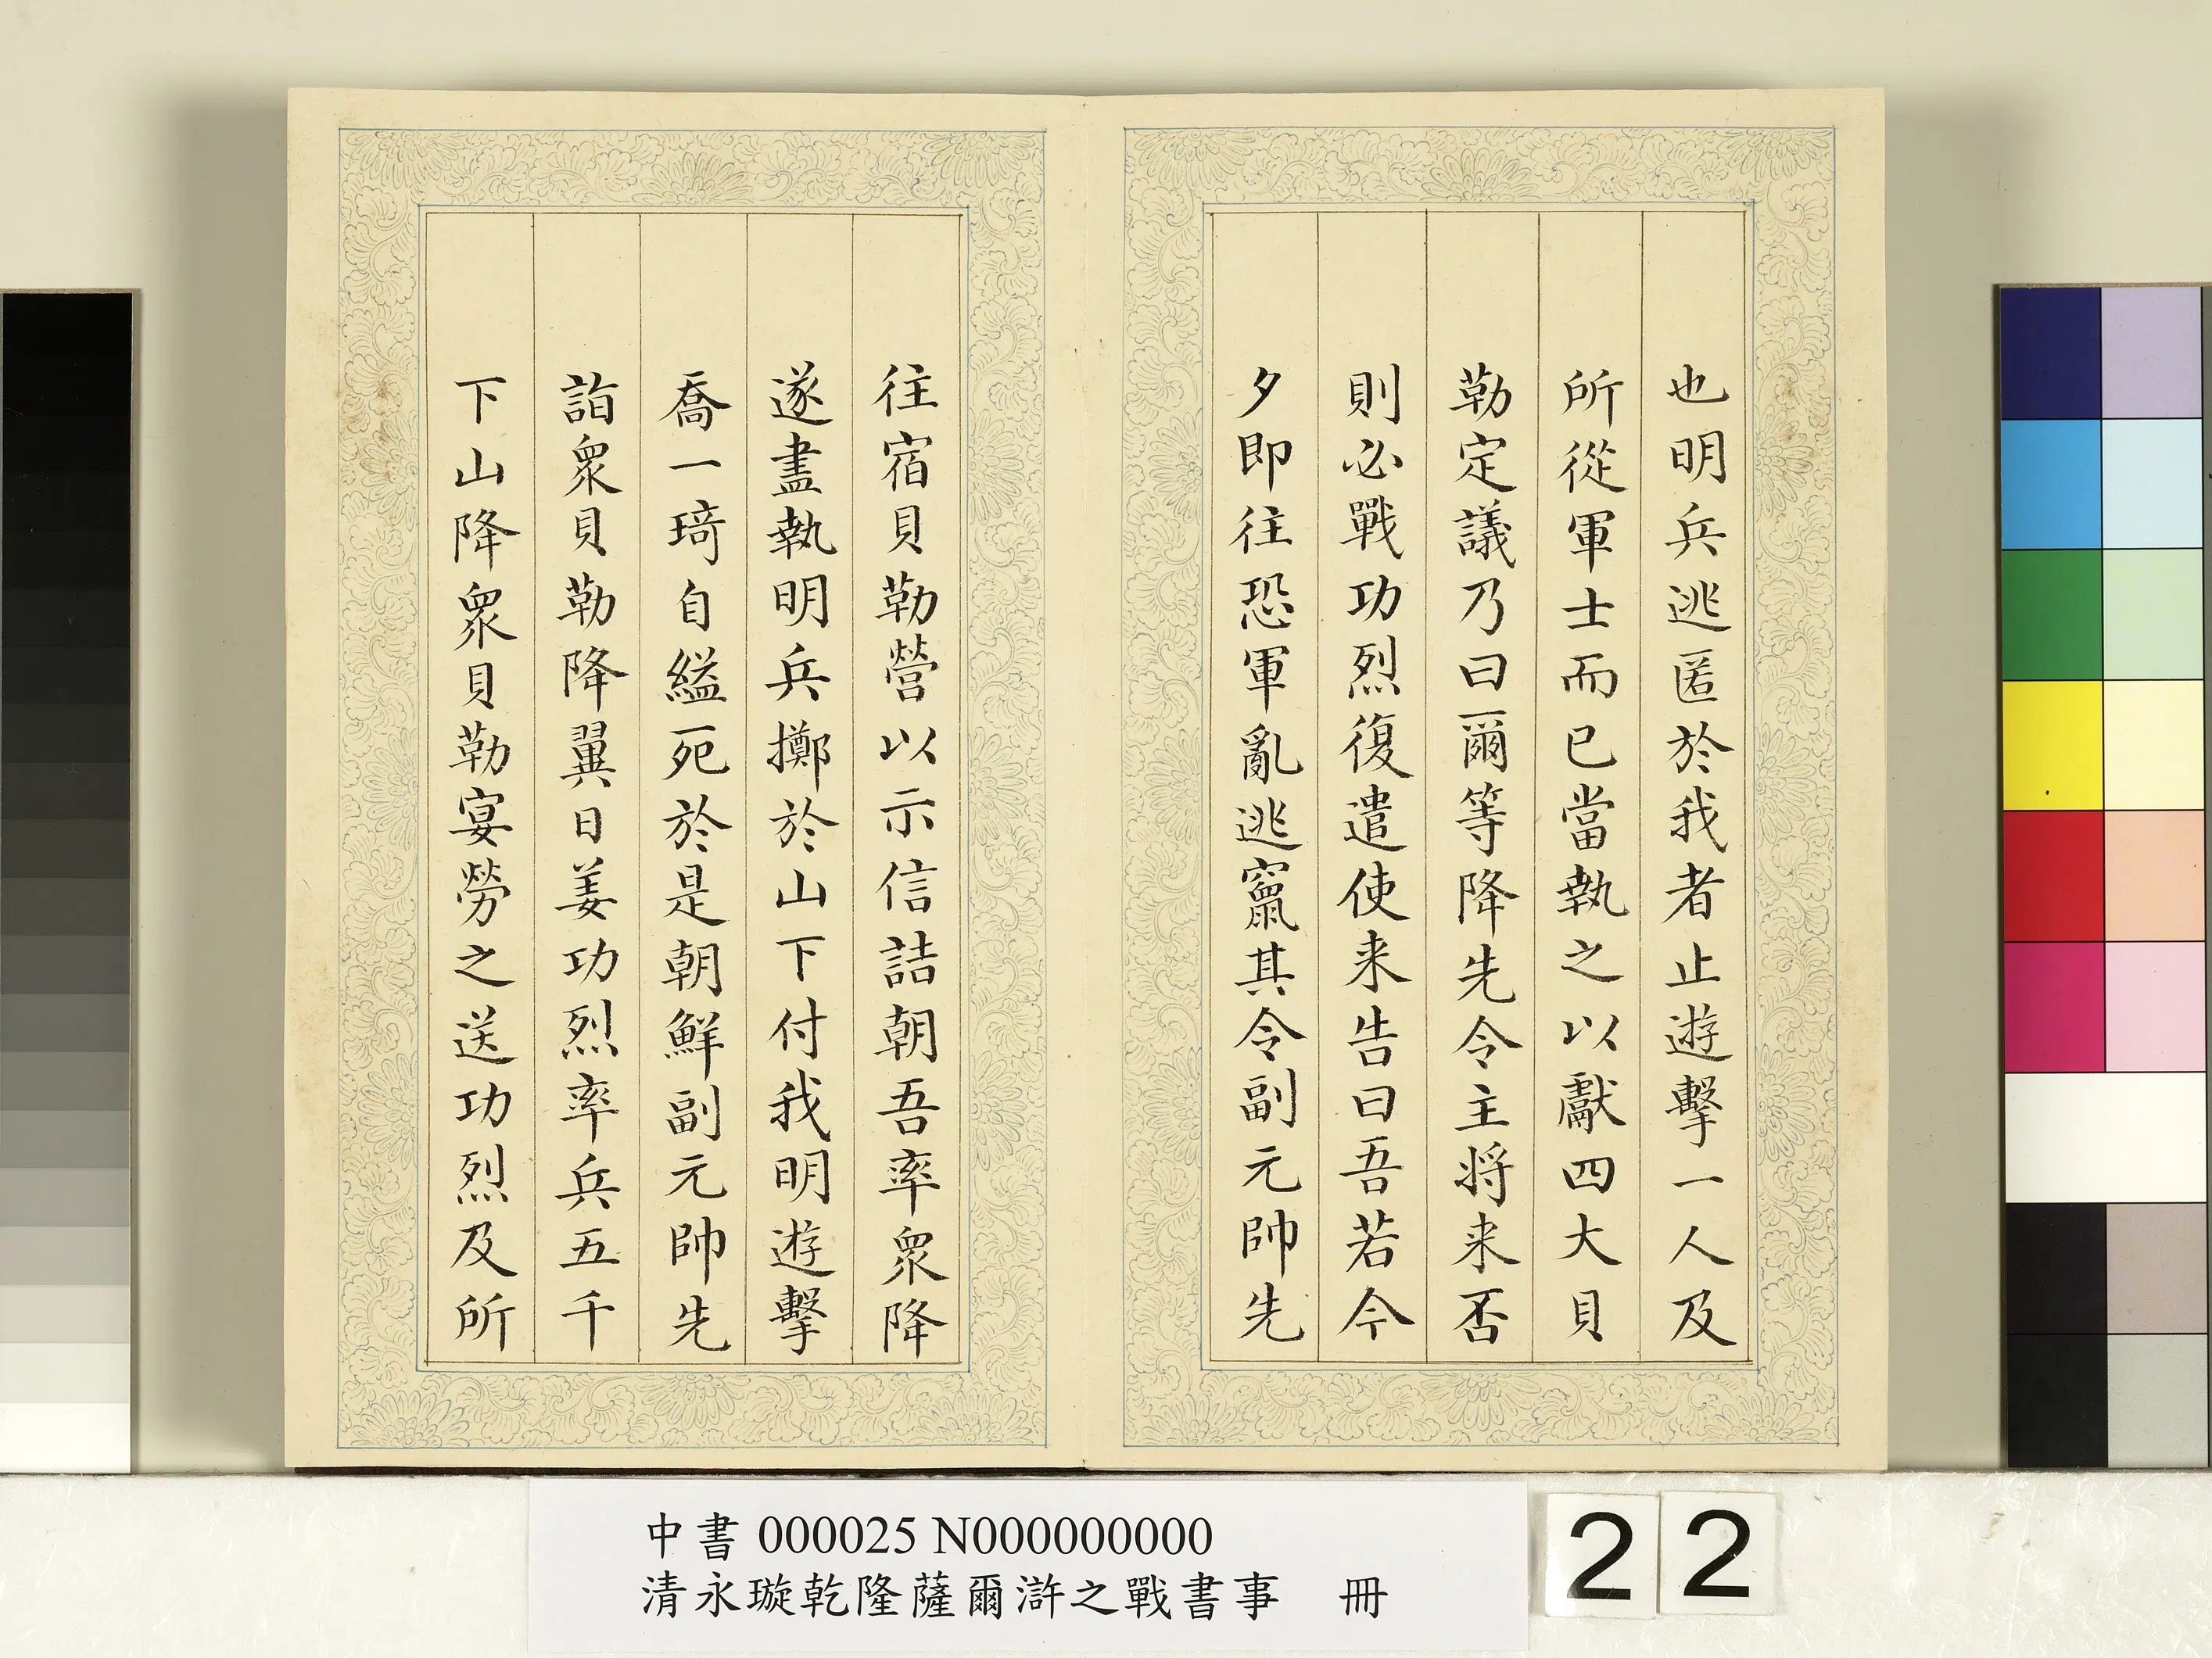 也明兵逃匿於我者止遊擊一人及
所從軍士而已當執之以獻四大貝
勒定議乃曰爾等降先令主將来否
則必戰功烈復遣使来告曰吾若今
夕即往恐軍亂逃竄其令副元帥先
往宿貝勒營以示信詰朝吾率眾降
遂盡執明兵擲於山下付我明遊擊
喬一琦自縊死於是朝鮮副元帥先
詣眾貝勒降翼日姜功烈率兵五千
下山降眾貝勒宴勞之送功烈及所
中書 000025 N000000000
清永璇乾隆薩爾滸之戰書事 冊
22